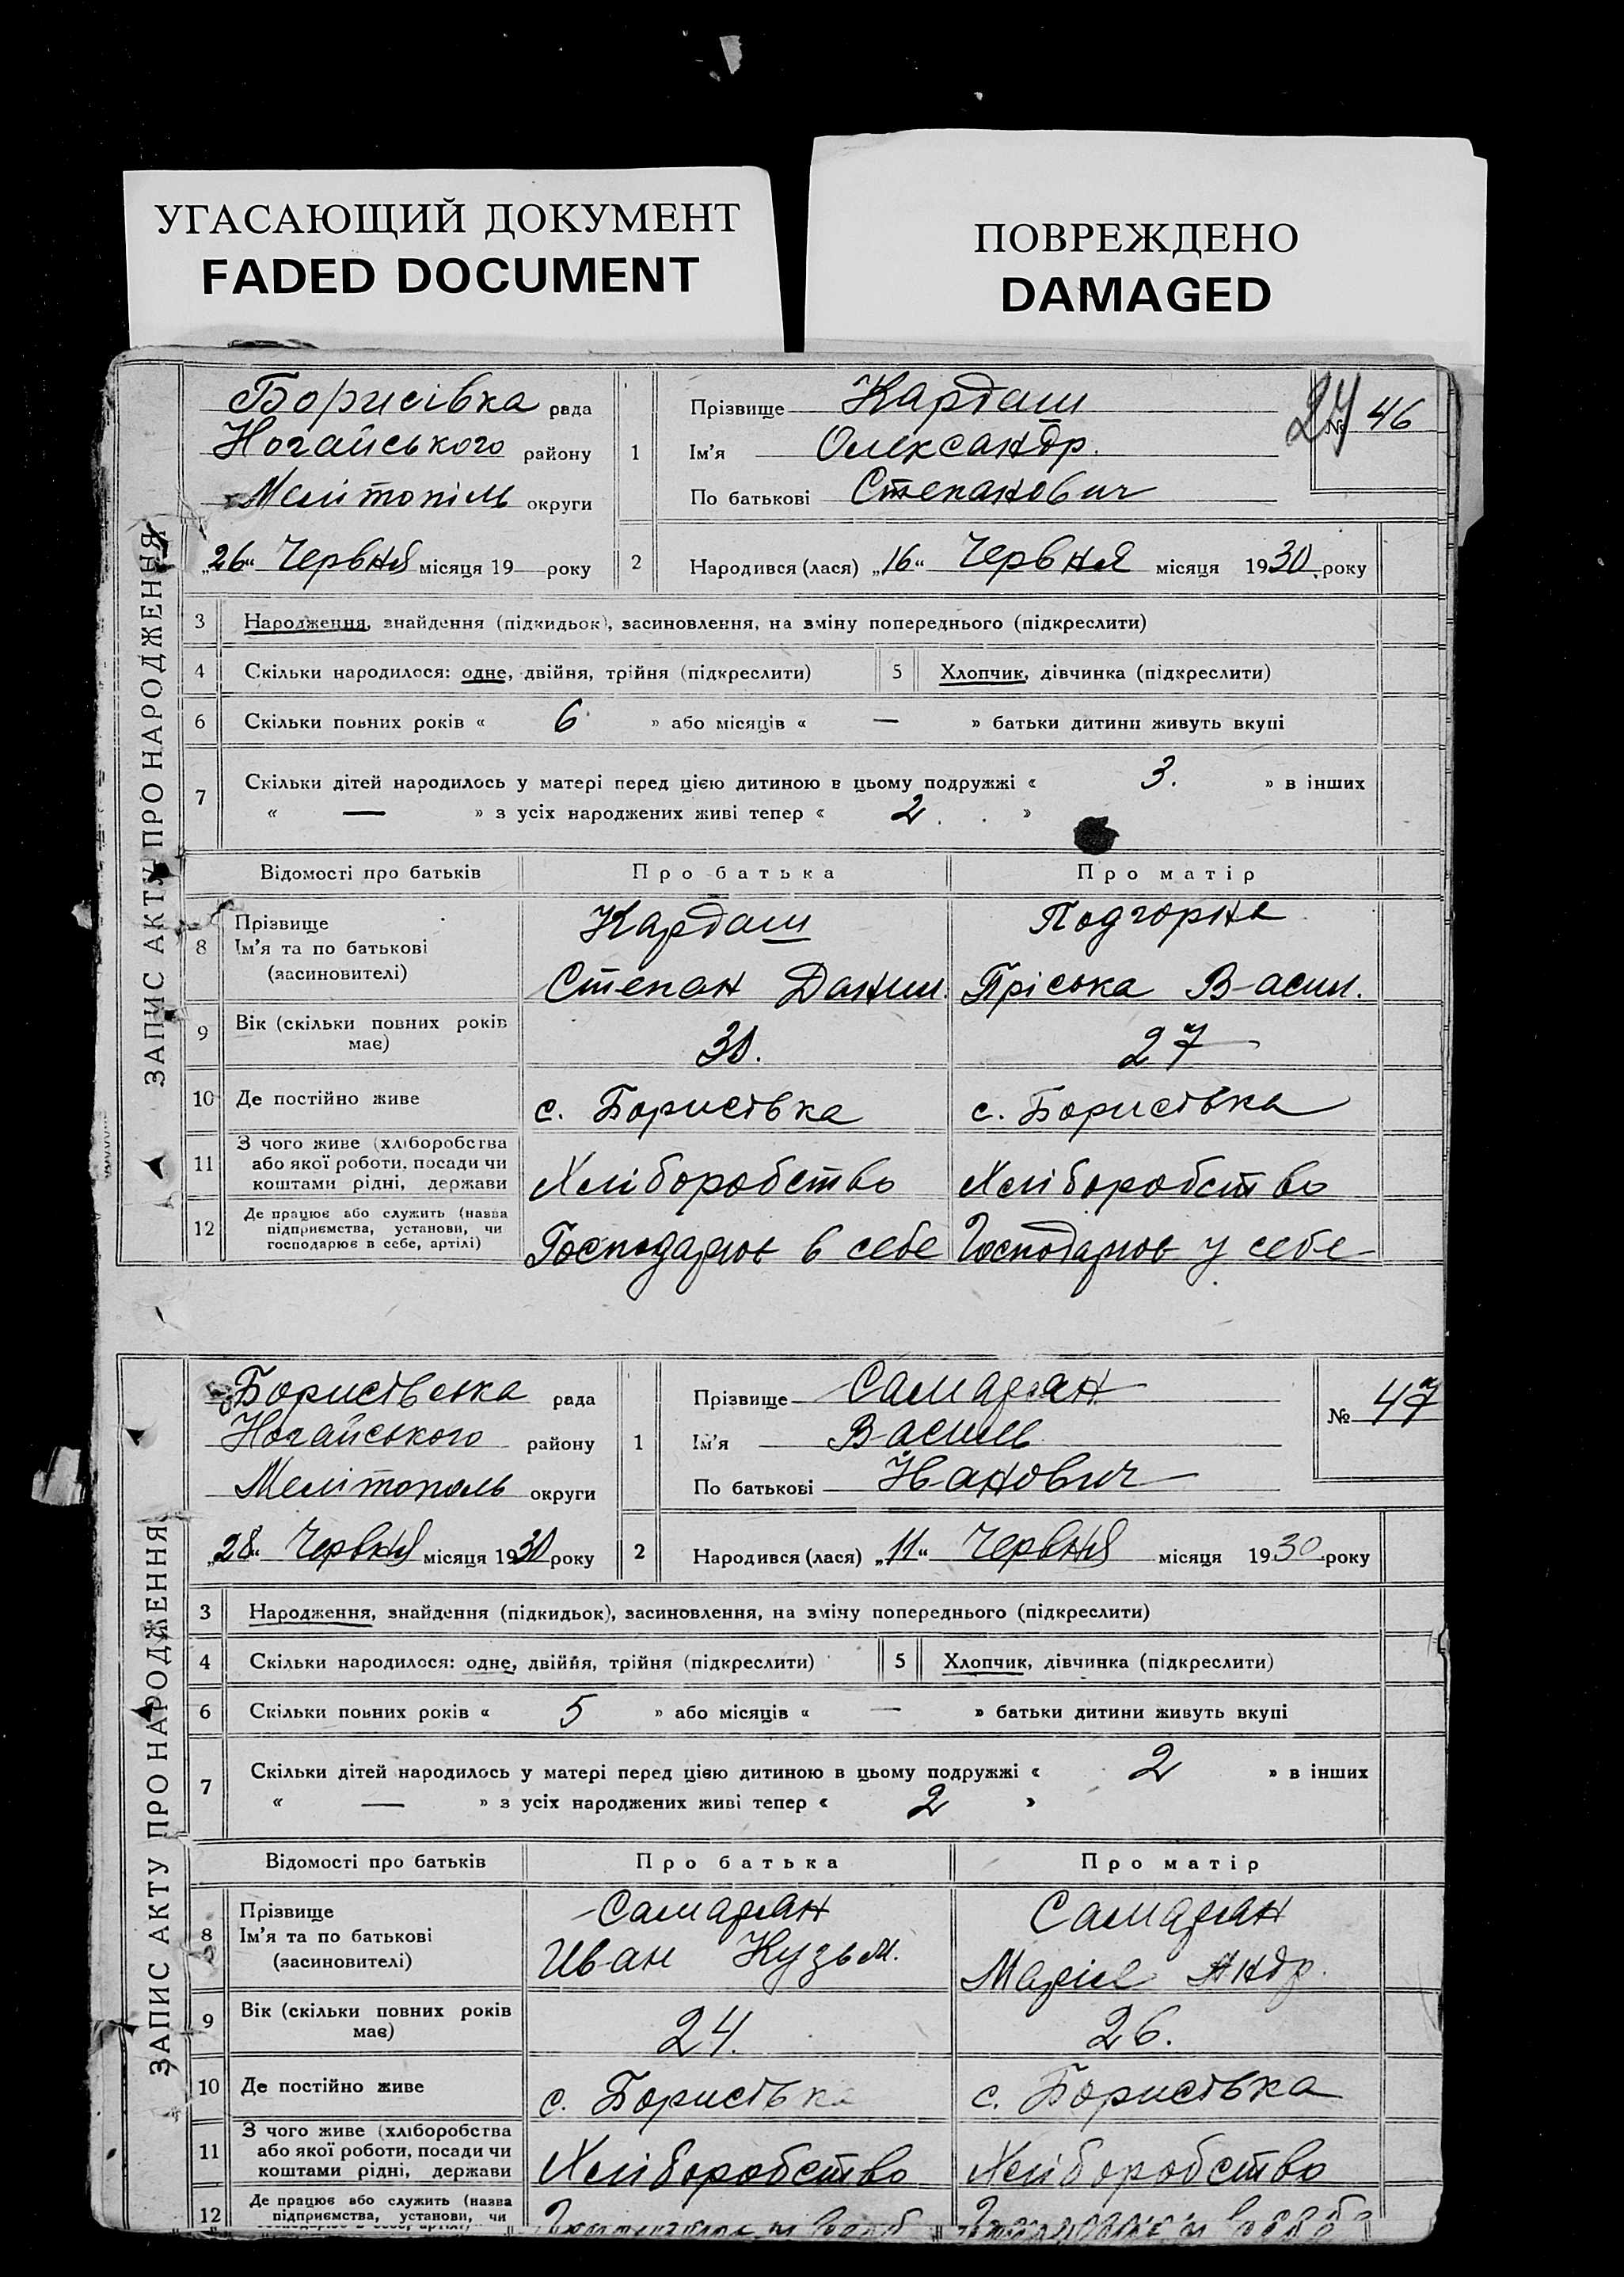 УГАСАЮЩИЙ ДОКУМЕНТ
FADED DOCUMENT
ПОВРЕЖДЕНО
DAMAGED
ЗАПИС АКТУ ПРО НАРОДЖЕННЯ
Борисівка рада
Ногайського району
Мелітопіль округи
„26“ Червня місяця 19 — року
1 Прізвище Кардаш
Ім'я Олександр.
По батькові Степанович
№ 46
27
2 Народився (лася) „16“ Червня місяця 1930 року
3 Народження, знайдення (підкидьок), засиновлення, на зміну попереднього (підкреслити)
4 Скільки народилося: одне, двійня, трійня (підкреслити) 5 Хлопчик, дівчинка (підкреслити)
6 Скільки повних років « 6 » або місяців « — » батьки дитини живуть вкупі
7 Скільки дітей народилось у матері перед цією дитиною в цьому подружжі « 3. » в інших
« — » з усіх народжених живі тепер « 2. »
Відомості про батьків Про батька Про матір
8 Прізвище Ім'я та по батькові (засновителі)
Кардаш Подгорна
Степан Данил. Пріська Васил.
9 Вік (скільки повних років має) 30. 27
10 Де постійно живе с. Борисівка с. Борисівка
11 З чого живе (хліборобства або якої роботи, посади чи коштами рідні, держави Хліборобство Хліборобство
12 Де працює або служить (назва підприємства, установи, чи господарює в себе, артілі) Господарює в себе Господарює у себе
ЗАПИС АКТУ ПРО НАРОДЖЕННЯ
Борисівська рада
Ногайського району
Мелітополь округи
„28“ Червня місяця 1930 року
1 Прізвище Самарган
Ім'я Василь
По батькові Іванович
№ 47
2 Народився (лася) „11“ Червня місяця 1930 року
3 Народження, знайдення (підкидьок), засиновлення, на зміну попереднього (підкреслити)
4 Скільки народилося: одне, двійня, трійня (підкреслити) 5 Хлопчик, дівчинка (підкреслити)
6 Скільки повних років « 5 » або місяців « — » батьки дитини живуть вкупі
7 Скільки дітей народилось у матері перед цією дитиною в цьому подружжі « 2 » в інших
« — » з усіх народжених живі тепер « 2 »
Відомості про батьків Про батька Про матір
8 Прізвище Ім'я та по батькові (засиновителі)
Иван Кузьм. Марія Андр.
9 Вік (скільки повних років має) 24. 26.
10 Де постійно живе с. Борисівка с. Борисівка
11 З чого живе (хліборобства або якої роботи, посади чи коштами рідні, держави Хліборобство Хліборобство
12 Де працює або служить (назва підприємства, установи, чи